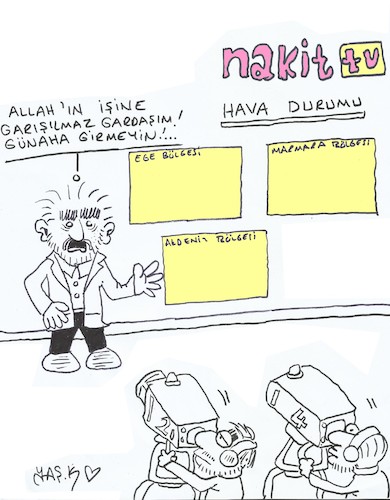 nakit tv
HAVA DURUMU
ALLAH'IN İŞİNE
GARIŞILMAZ GARDAŞIM!
GÜNAHA GİRMEYİN!...
EGE BÖLGESİ
MARMARA BÖLGESİ
AKDENİZ BÖLGESİ
2
4
YAŞ.K